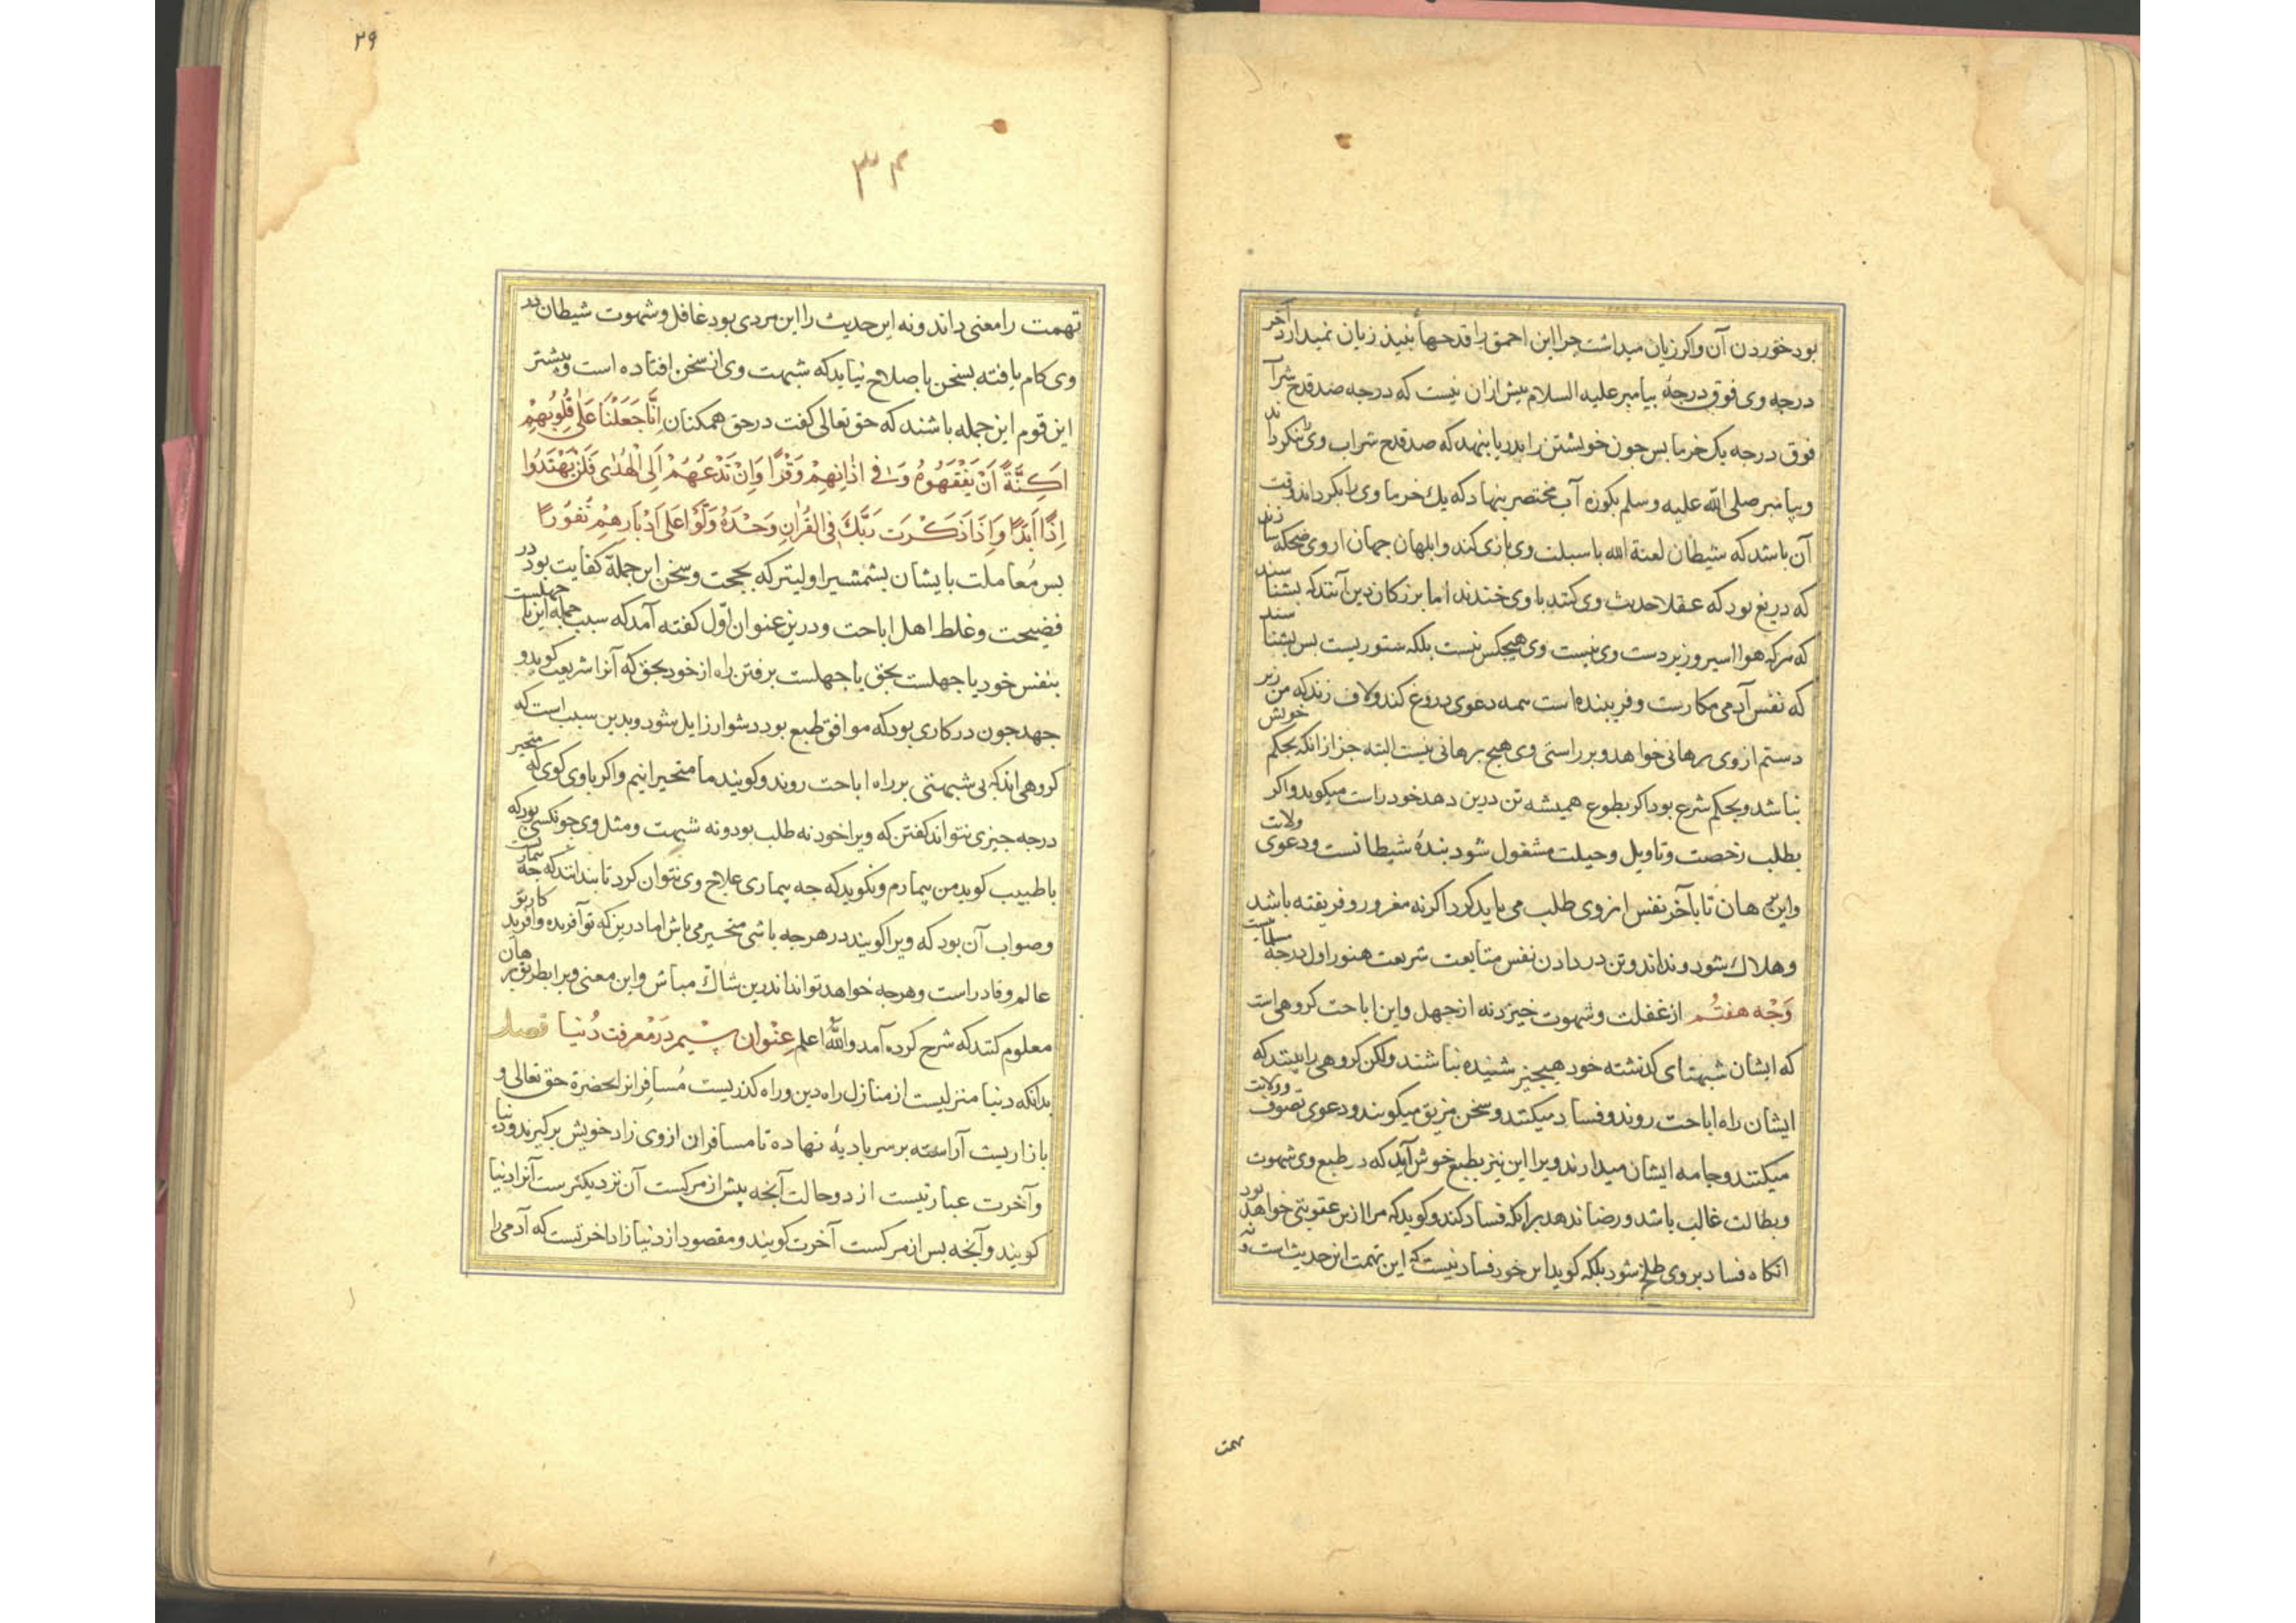 بود خوردن آن واکر زیان میداشت جرا این احمق را قدحهاء نبیذ زیان نمیدارد آخر
درجه وی فوق درجهٔ بیامبر علیه السلام بیش ازان نیست که درجه صد قدح شرآ
فوق درجه یک خرما بس جون خویشتن را بدریا بنهد که صد قدح شراب ویرا نکردا ند
وبیامبر صلی الله علیه وسلم بکوزه آب مختصر بنهاد که یك خرما وی را بکرداند وقت
آن باشد که شیطان لعنة الله با سبلت وی بازی کند وابلهان جهان از وی ضحکه سا زند
که دریغ بود که عقلا حدیث وی کنند یا وی خندند اما بزرکان دین آنند که بشنا سند
که هرکه هوا اسیر وزیر دست وی نیست وی هیجکس نیست بلکه ستوریست بس بشنا سند
که نفس آدمی مکارست وفریبنده است همه دعوی دروغ کند ولاف زند که من زیر
دستم از وی برهانی خواهد وبر راستی وی هیج برهانی نیست البته جز ازانکه بحکم خویش
نباشد وبحکم شرع بود اکر بطوع همیشه تن درین دهد خود راست میکوید واکر
بطلب رخصت وتاویل وحیلت مشغول شود بندهٔ شیطانست ودعوی ولایت
واین برهان تا بآخر نفس از وی طلب می باید کرد اکرنه مغرور وفریفته باشد
وهلاك شود ونداند وتن در دادن نفس متابعت شریعت هنوز اول درجه مسلمانیست
وَجْه هفتُم از غفلت وشهوت خیزد نه از جهل واین اباحت کروهی است
که ایشان شبهتهای کذشته خود هیجیز شنیده نباشند ولکن کروهی را بینند که
ایشان راه اباحت روند وفساد میکنند وسخن مزیق میکویند ودعوی تصوف وولایت
میکنند وجامه ایشان میدارند ویرا این نیز بطبع خوش آید که در طبع وی شهوت
وبطالت غالب باشد ورضا ندهد برانکه فساد کند وکوید که مرا ازین عقوبتی خواهد بود
انکاه فساد بروی طلخ شود بلکه کوید این خود فساد نیست که این تهمت این حدیث است ونه
تهمت
۲۹
۳۴
تهمت را معنی داند ونه این حدیث را این مردی بود غافل وشهوت شیطان در
وی کام یافته بسخن باصلاح نیاید که شبهت وی از سخن افتاده است وبیشتر
این قوم این جمله باشند که حق تعالی کفت در حق همکنان اِنَّا جَعَلْنَا عَلٰی قُلُوبِهِمْ
اَكِنَّةً اَنْ یَفْقَهُوهُ وَفی اٰذَانِهِمْ وَقْرًا وَاِنْ تَدْعُهُمْ اِلَی الْهُدٰی فَلَنْ یَهْتَدُوا
اِذًا اَبَدًا وَاِذَا ذَكَرْتَ رَبَّكَ فِی القُرْاٰنِ وَحْدَهُ وَلَّوْا عَلٰی اَدْبَارِهِمْ نُفُورًا
بس مُعاملت با یشان بشمشیر اولیتر که بحجت وسخن این جملة کفایت بود در
فضیحت وغلط اهل اباحت ودرین عنوان اوّل کفته آمد که سبب جمله این یا جهلست
بنفس خود یا جهلست بحق یا جهلست برفتن راه از خود بحق که آنرا شریعت کویند و
جهد جون در کاری بود که موافق طبع بود دشوار زایل شود وبدین سبب است که
کروهی اند که بی شبهتی بر راه اباحت روند وکویند ما متحیرانیم واکر با وی کوی که متحیر
درجه جیزی نتواند کفتن که ویرا خود نه طلب بود ونه شبهت ومثل وی جو نکسی بود که
با طبیب کوید من بیمارم ونکوید که جه بیماری علاج وی نتوان کرد تا بندانند که جه بیماریست
وصواب آن بود که ویرا کویند در هرجه باشی متحیر می باش اما درین که تو آفریده وآفرید کار تو
عالم وقادر است وهرجه خواهد تواند اندرین شاكّ مباش واین معنی ویرا بطریق برهان
معلوم کنند که شرح کرده آمد والله اعلم عِنْوان سِیُم دَر مَعرفت دُنیا فصل
بدانکه دنیا منزلیست از منازل راه دین وراه کذریست مُسافِرانرا بحضرة حق تعالی و
بازاریست آراسته بر سر بادیهٔ نهاده تا مسافران از وی زاد خویش برکیرند ودنیا
وآخرت عبارتیست از دو حالت آنجه بیش از مرکست آن نزدیکترست آنرا دنیا
کویند وآنجه بس از مرکست آخرت کویند ومقصود از دنیا زاد آخرتست که آدمی را